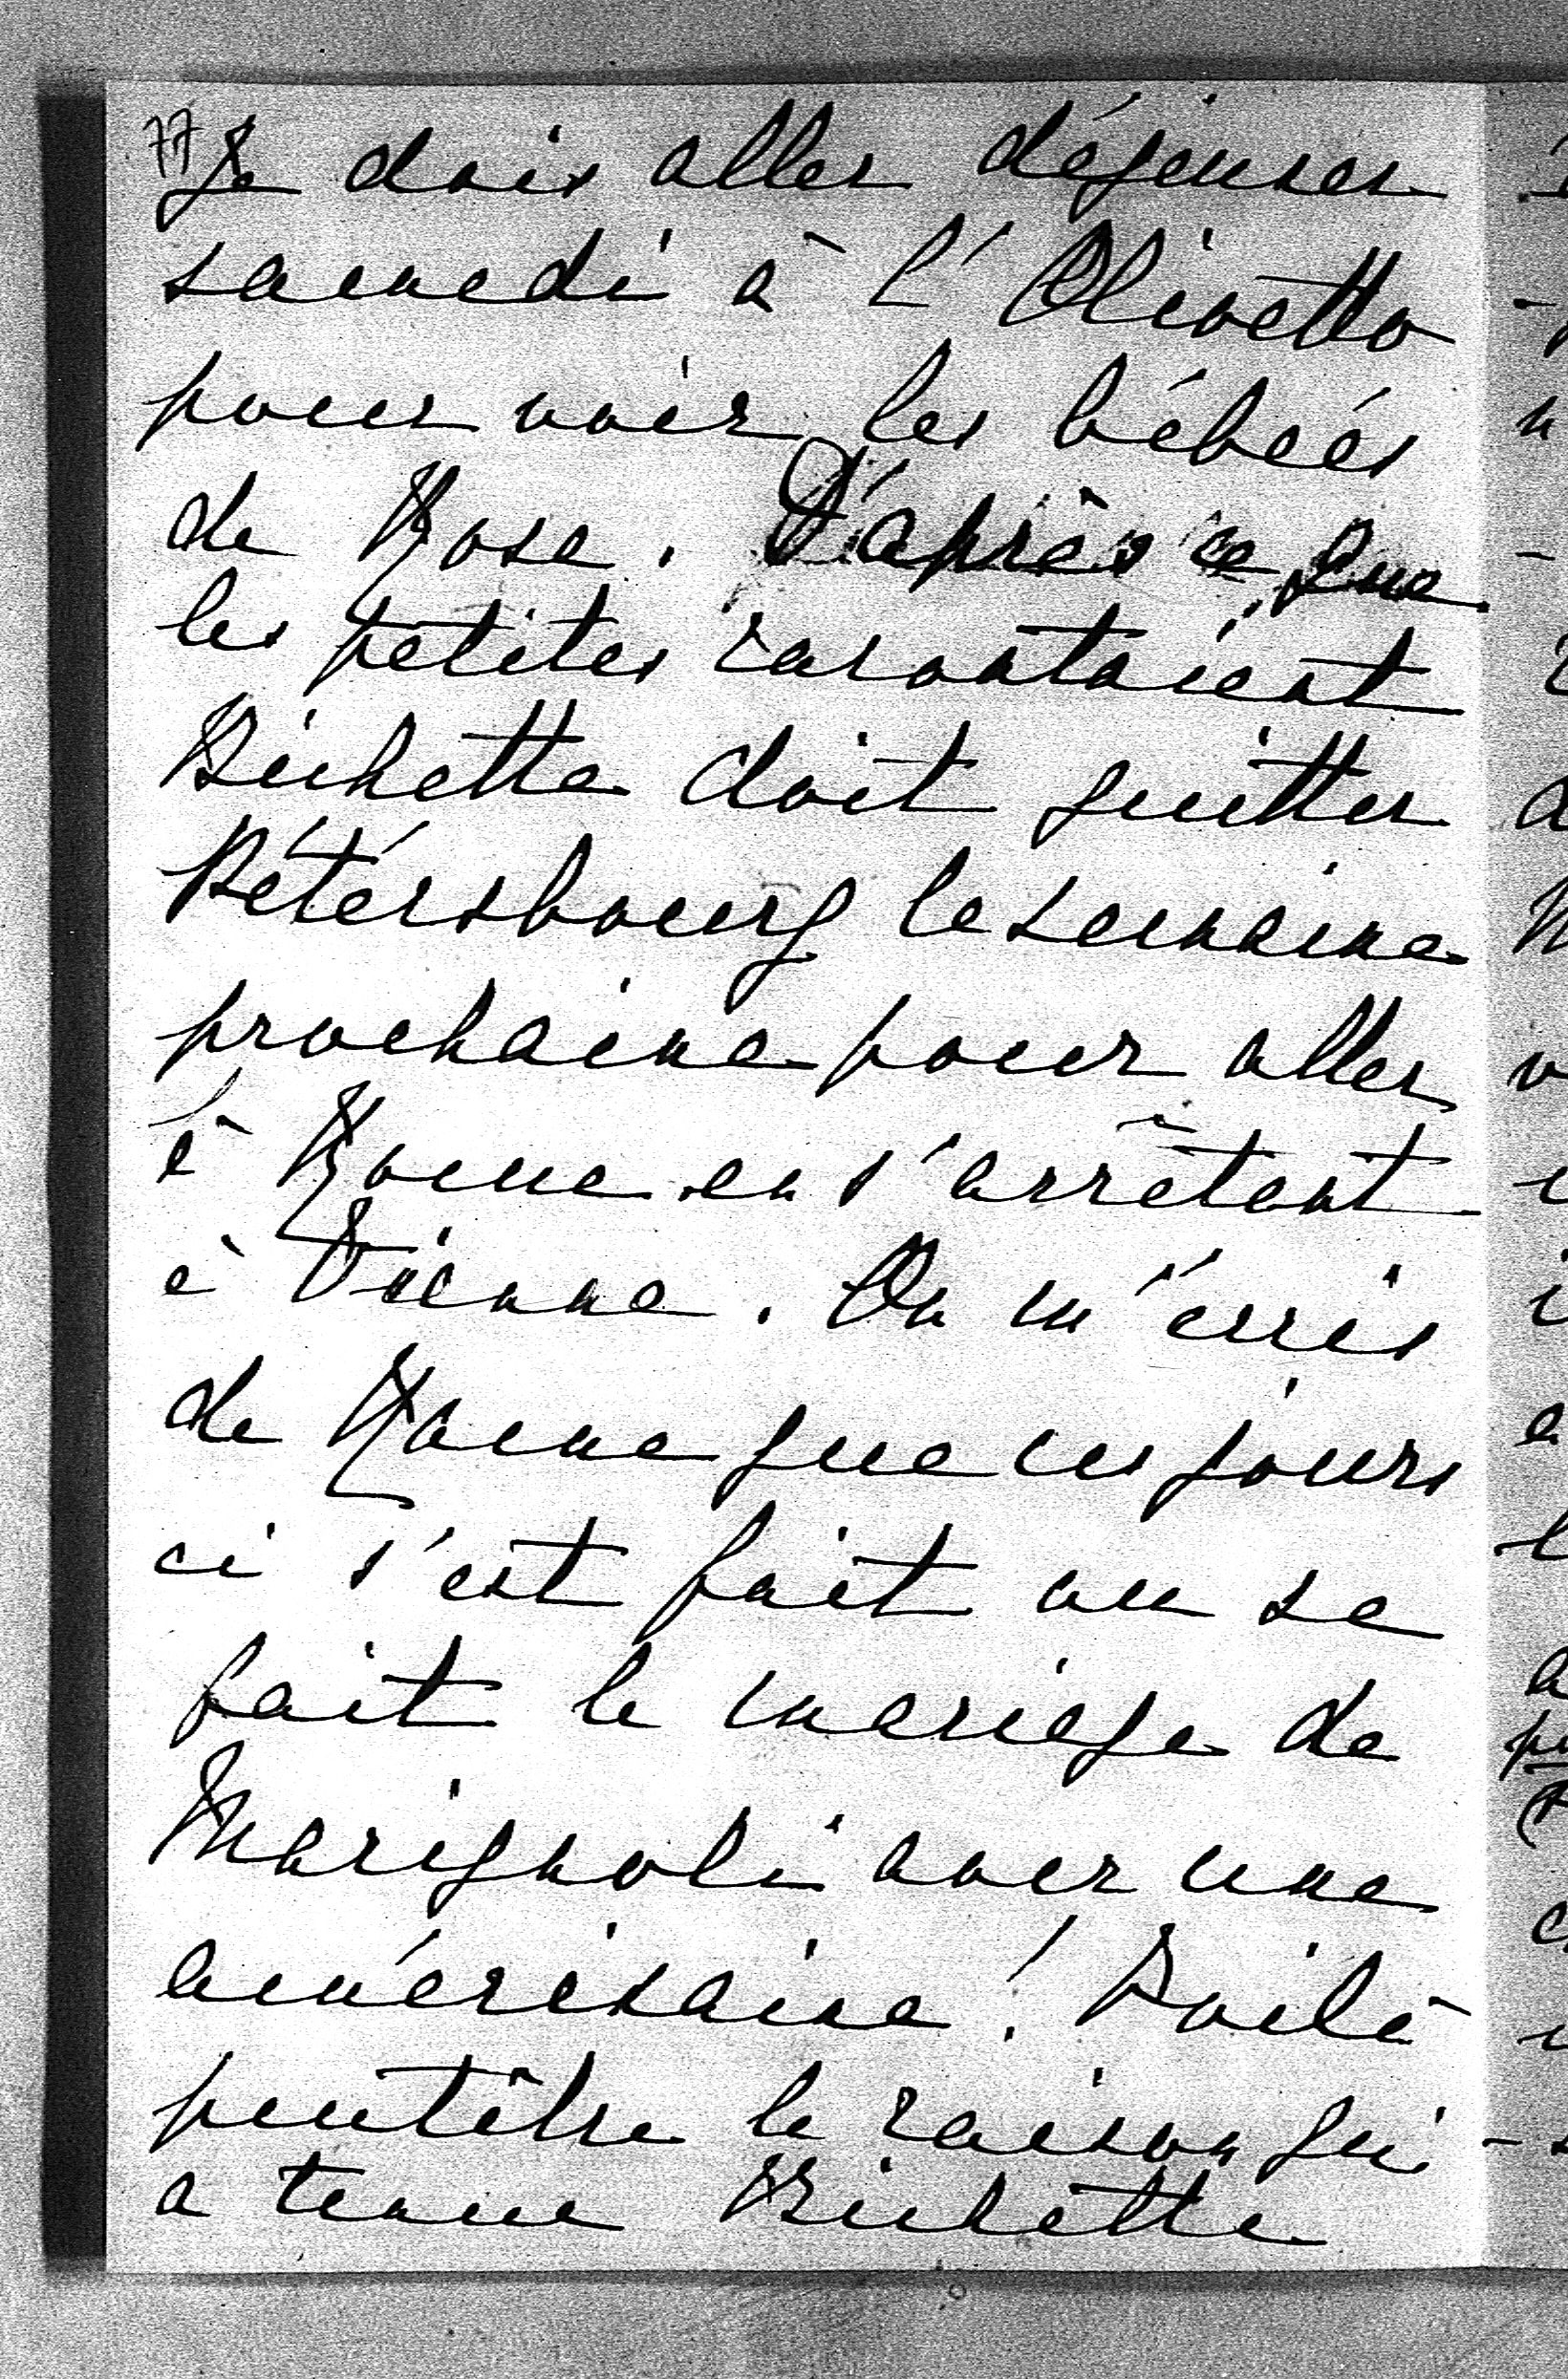 77 Je dois aller déjeuner
samedi à l'Olivetta
pour voir les bébées
de Rose. D'après ce que
les petites racontaient
Bichette doit quitter
Pétérsbourg la semaine
prochaine pour aller
à Rome en s'arrêtant
à Vienne. On m'écris
de Rome que ces jours
ci s'est fait ou se
fait le mariage de
Marignoli avec une
américaine! Voilà
peutêtre la raison qui
a tenue Bichette